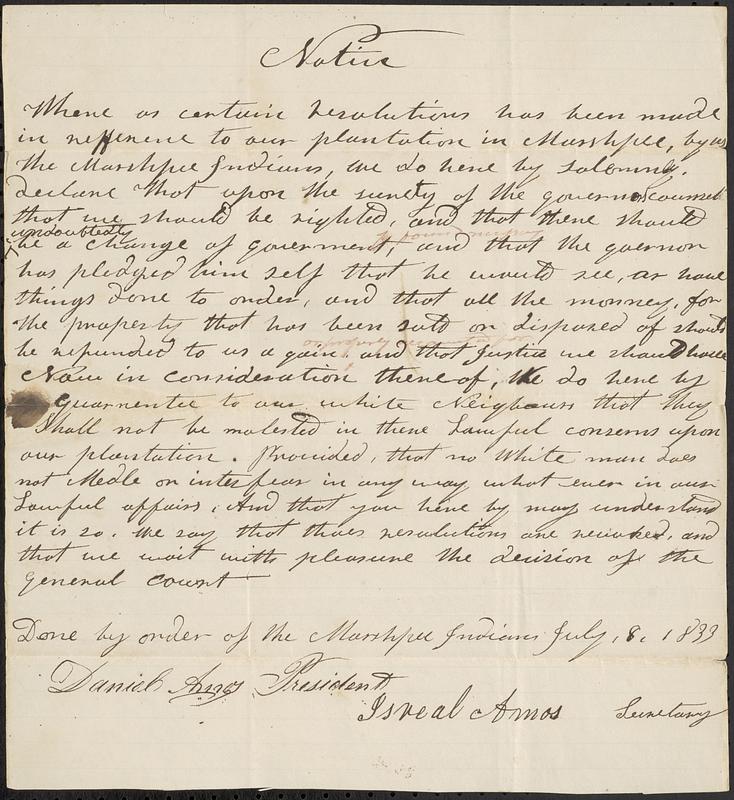 Notice
Where as certain resolutions has been made
in refference to our plantation in Marshpee, by us
the Marshpee Indians, we do here by solemnly.
declare that upon the surety of the governors counsel
that we should be righted, and that there should
undoubtedly
be a change of goverment, and that the goernor
has pledged him self that he would see, as have
things done to order, and that all the monney, for
the property that has been sold or disposed of should
or property accounted for
be refunded to us a gain, and that justice we should have
Now in consideration there of, We do here by
guarnentee to our white Neighbours that they
Shall not be molested in there Lawful conserns upon
our plantation. Provided, that no White man does
not Medle or interfear in any way what ever in our
Lawful affairs, And that you here by may understand
it is so. we say that thaes resolutions are revoked, and
that we wait with pleasure the decision of the
general court
Done by order of the Marshpee Indians July, 8, 1833
Daniel Amos President
Isreal Amos Secretary